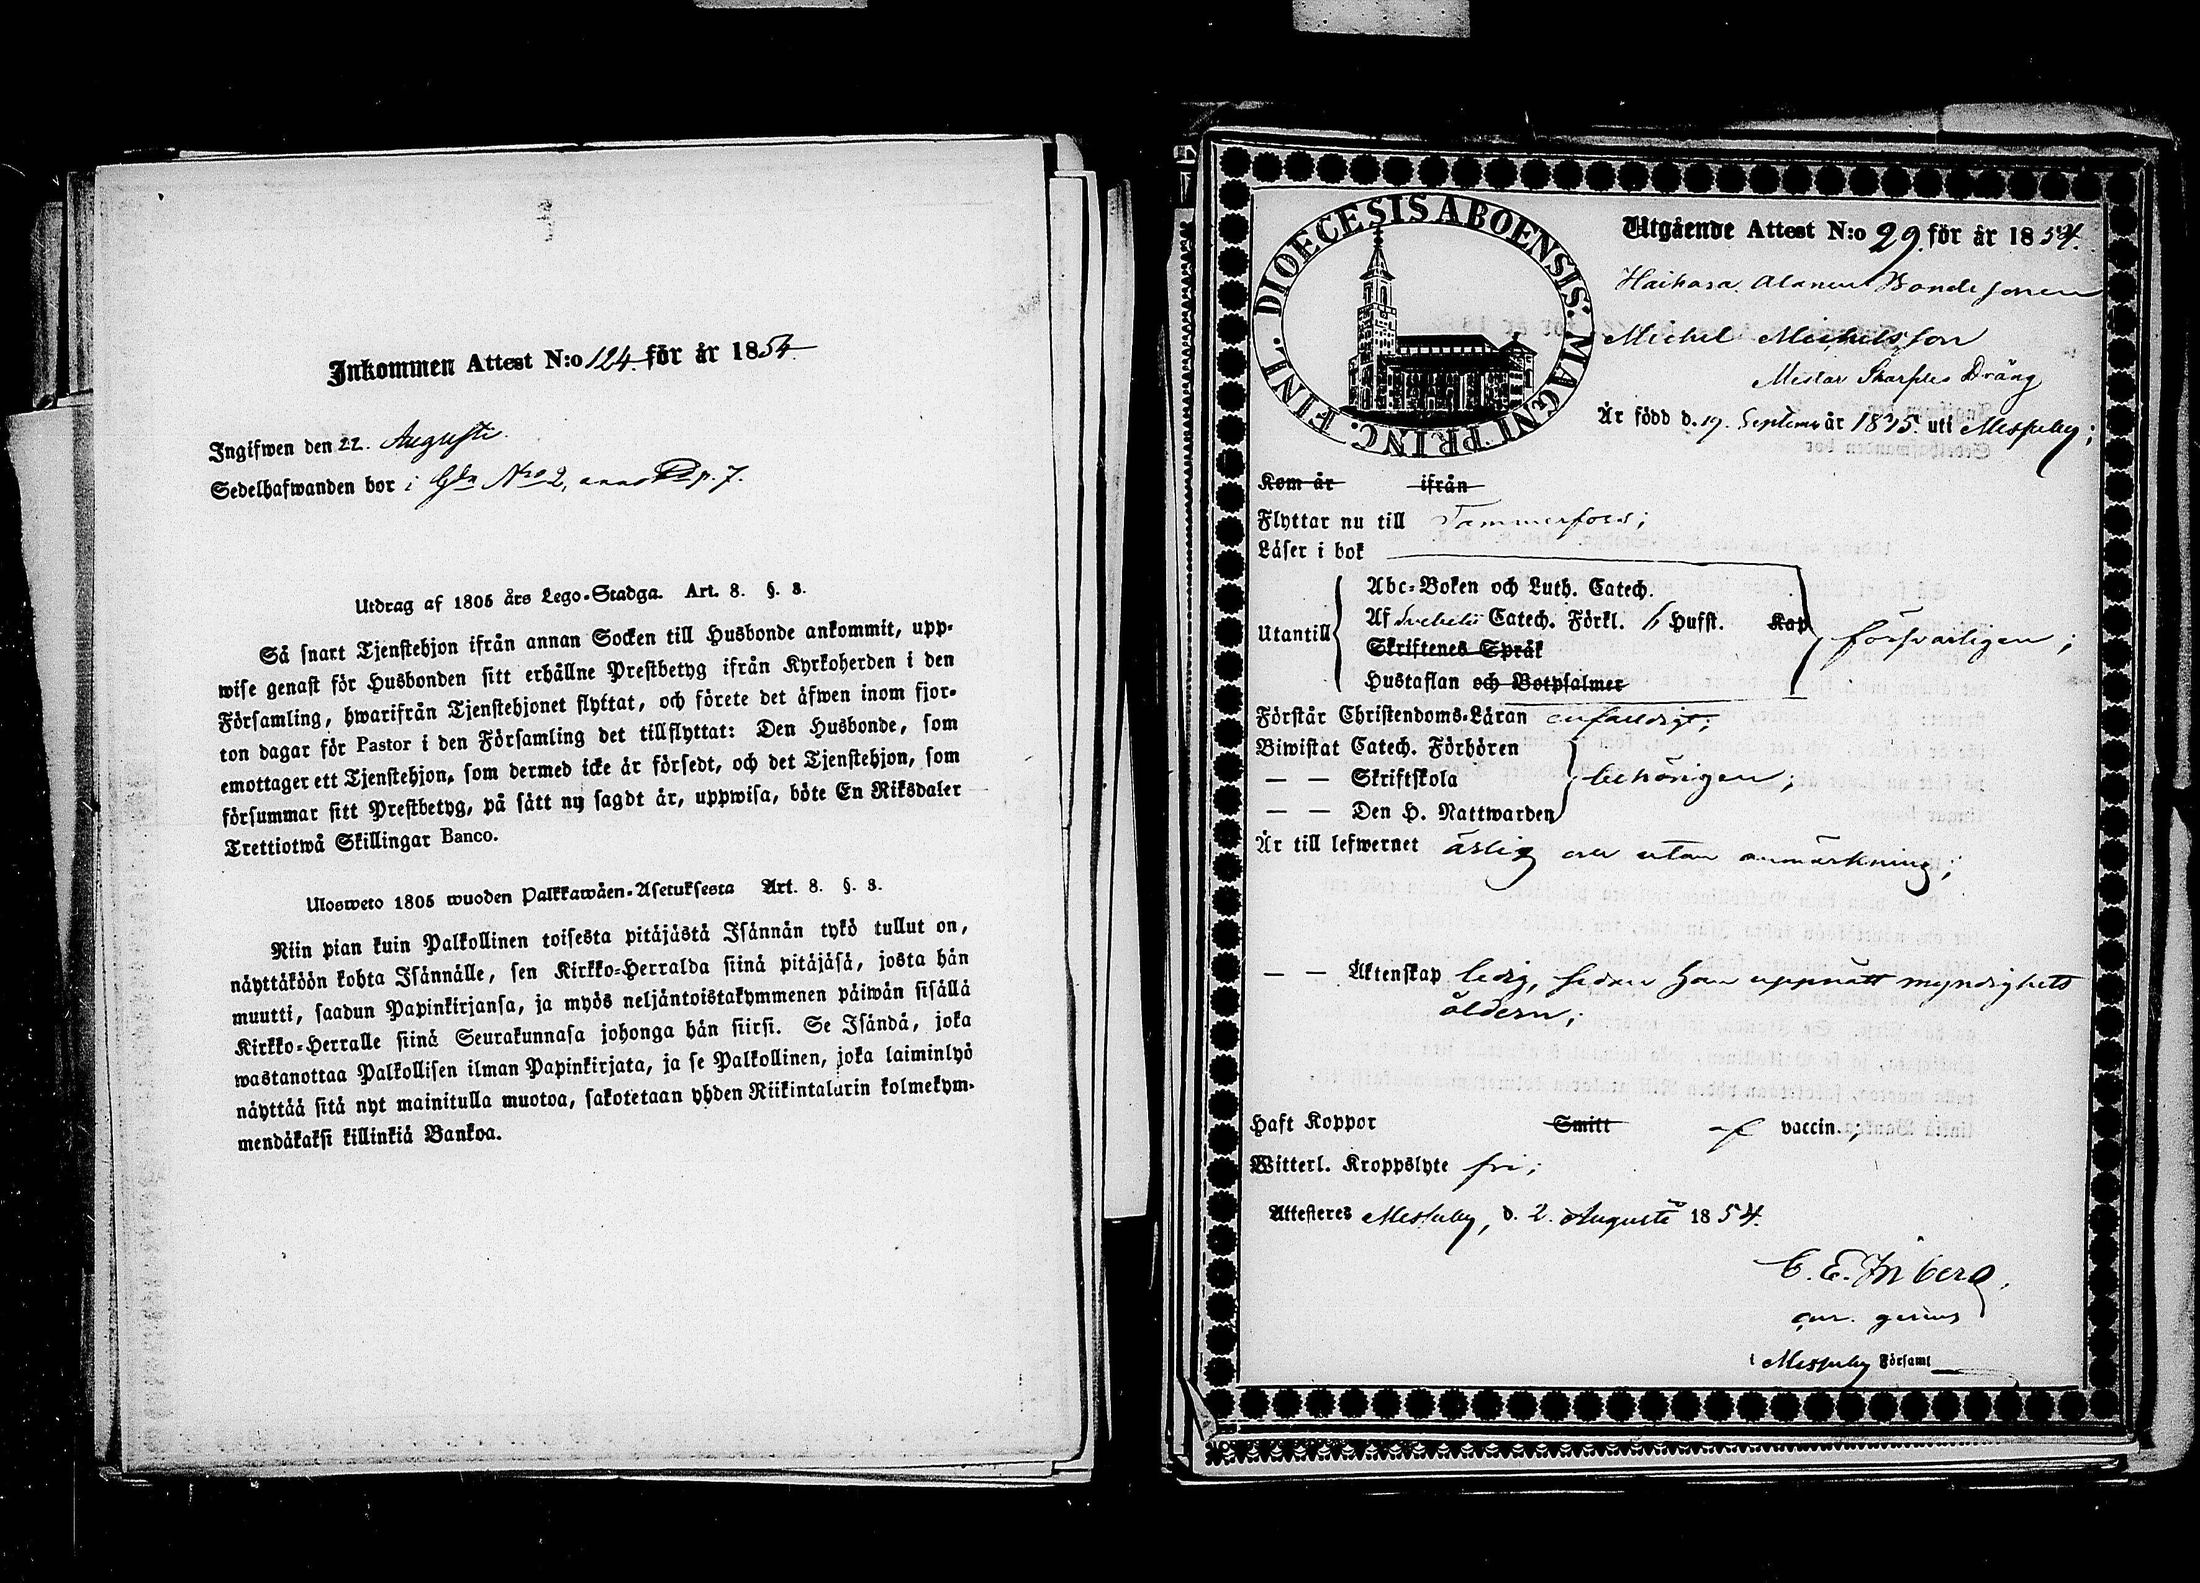 Inkommen Attest N:o 124. för år 1854.
Ingifwen den 22. Augusti.
Sedelhafwanden bor i Gdn Nro 2, p. 7.
Utdrag af 1805 års Lego-Stadga. Art. 8. §. 3.
Så snart Tjenstehjon ifrån annan Socken till Husbonde ankommit, upp-
wise genast för Husbonden sitt erhållne Prestbetyg ifrån Kyrkoherden i den
Församling, hwarifrån Tjenstehjonet flyttat, och förete det äfwen inom fjor-
ton dagar för Pastor i den Församling det tillflyttat: Den Husbonde, som
emottager ett Tjenstehjon, som dermed icke är försedt, och det Tjenstehjon, som
försummar sitt Prestbetyg, på sätt ny sagdt är, uppwisa, böte En Riksdaler
Trettiotwå Skillingar Banco.
Ulosweto 1805 wuoden Palkkawäen-Asetuksesta Art. 8. §. 3.
Niin pian kuin Palkollinen toisesta pitäjästä Isännän tykö tullut on,
näyttäköön kohta Isännälle, sen Kirkko-Herralda siinä pitäjäsä, josta hän
muutti, saadun Papinkirjansa, ja myös neljäntoistakymmenen päiwän sisällä
Kirkko-Herralle siinä Seurakunnasa johonga hän siirsi. Se Isändä, joka
wastanottaa Palkollisen ilman Papinkirjata, ja se Palkollinen, joka laiminlyö
näyttää sitä nyt mainitulla muotoa, sakotetaan yhden Riikintalarin kolmekym-
mendäkaksi killinkiä Bankoa.
DIOECESIS ABOENSIS. MAGNI PRINC. FINL.
Utgående Attest N:o 29. för år 1854.
Haihara Alanen Bondesonen
Michel Michelsson
Mestar Sharples Dräng
Är född d. 19. Septemb år 1835. uti Messuby;
Kom år ifrån
Flyttar nu till Tammerfors;
Läser i bok
Utantill
Abc-Boken och Luth. Catech.
Af Svebelii Catech. Förkl. 6 Hufst. Kap
Skriftenes Språk
Hustaflan och Botpsalmer
försvarligen;
Förstår Christendoms-Läran enfaldigt;
Biwistat Catech. Förhören
— — Skriftskola
— — Den H. Nattwarden
behörigen;
Är till lefwernet ärlig och utan anmärkning;
— — Äktenskap ledig, sedan han uppnått myndighets
åldern;
Haft Koppor Smitt af vaccin.
Witterl. Kroppslyte fri;
Attesteras Messuby, d. 2. Augusti 1854.
C. E. Inberg,
i Messuby Församl